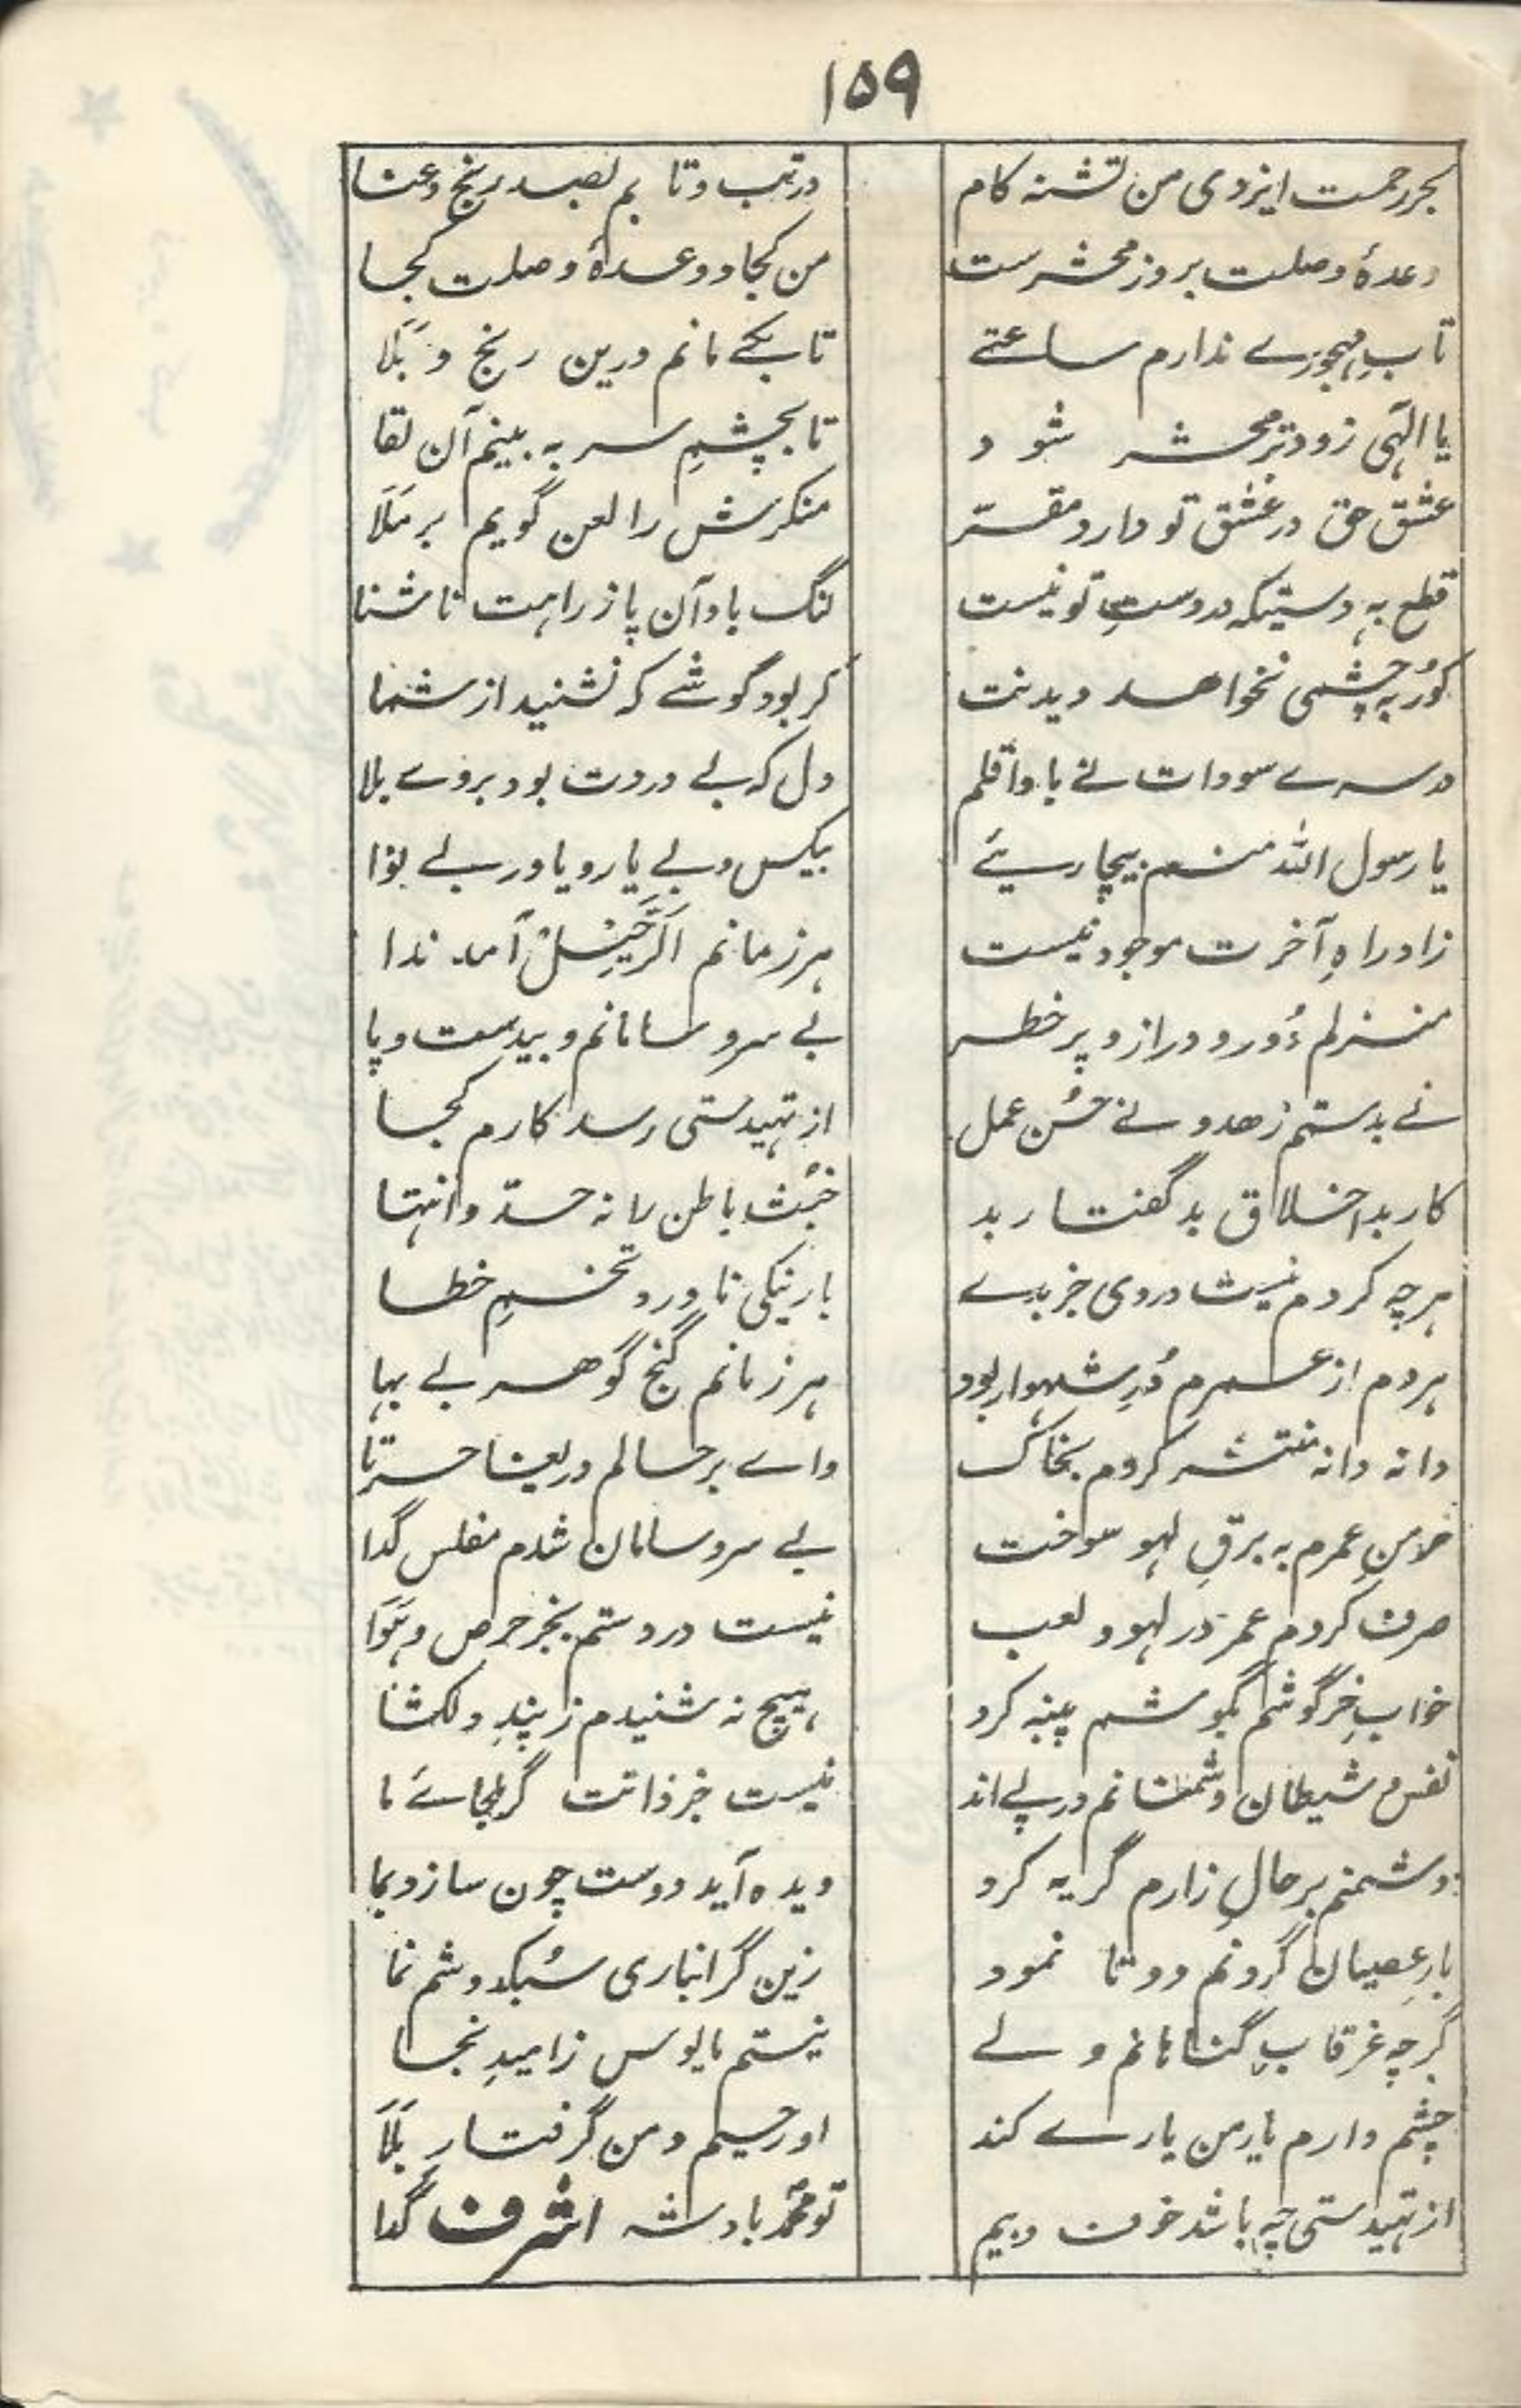 ۱۵۹
بحر رحمت ایزدی من تشنه کام
در تب و تا بم بصد رنج و عنا
وعدهٔ وصلت بروز محشرست
من کجا و وعدهٔ وصلت کجا
تابِ مهجورے ندارم ساعتے
تا بکے مانم درین رنج و بَلَا
یا الٰہی زود تر محشر شود
تا بچشمِ سر به بینم آن لقا
عشق حق در عشق تو دارد مقرّ
منکرش را لعن گویم بر مَلَا
قطع به دستیکه در دستِ تو نیست
لنگ باد آن پا ز راهت ناشنا
کور به چشمی نخواهد دیدنت
کر بود گوشے که نشنید از شما
در سرے سودات نے بادا قلم
دل که بے دردت بود بروے بلا
یا رسول اللہ منم بیچاریئے
بیکس و بے یار و یاور بے نوا
زاد راہِ آخرت موجود نیست
هر زمانم اَلرَّحِیْل آمد ندا
منزلم دُور و دراز و پر خطر
بے سر و سامانم و بیدست و پا
نے بدستم زهد و نے حُسن عمل
از تهیدستی رسد کارم کجا
کار بد اخلاق بد گفتار بد
خبُث باطن را نه حدّ و انتها
هر چه کردم نیست در وی جز بدے
بار نیکی ناورد تخمِ خطا
هر دم از عمرم دُرِ شهوار بود
هر زمانم گنج گوهر بے بها
دانه دانه منتشر کردم بخاک
واے بر حالم دریغا حسرتا
خرمنِ عمرم به برقِ لهو سوخت
بے سر و سامان شدم مفلس گدا
صرف کردم عمر در لهو و لعب
نیست در دستم بجز حرص و هَوَا
خوابِ خرگوشم بگوشم پنبه کرد
هیچ نه شنیدم ز پندِ دلکشا
نفس و شیطان دشمنانم در پے اند
نیست جز ذاتت گر ملجاے ما
دشمنم بر حالِ زارم گریه کرد
دیده آید دوست چون سازد بما
بارِ عصیان گردنم دوتا نمود
زین گرانباری سُبکدوشم نما
گرچه غرقابِ گناهانم ولے
نیستم مایوس ز امیدِ نجا
چشم دارم یار من یارے کند
او رحیم و من گرفتارِ بَلَا
از تهیدستی چه باشد خوف و بیم
تو محمّد بادشه اشرف گدا